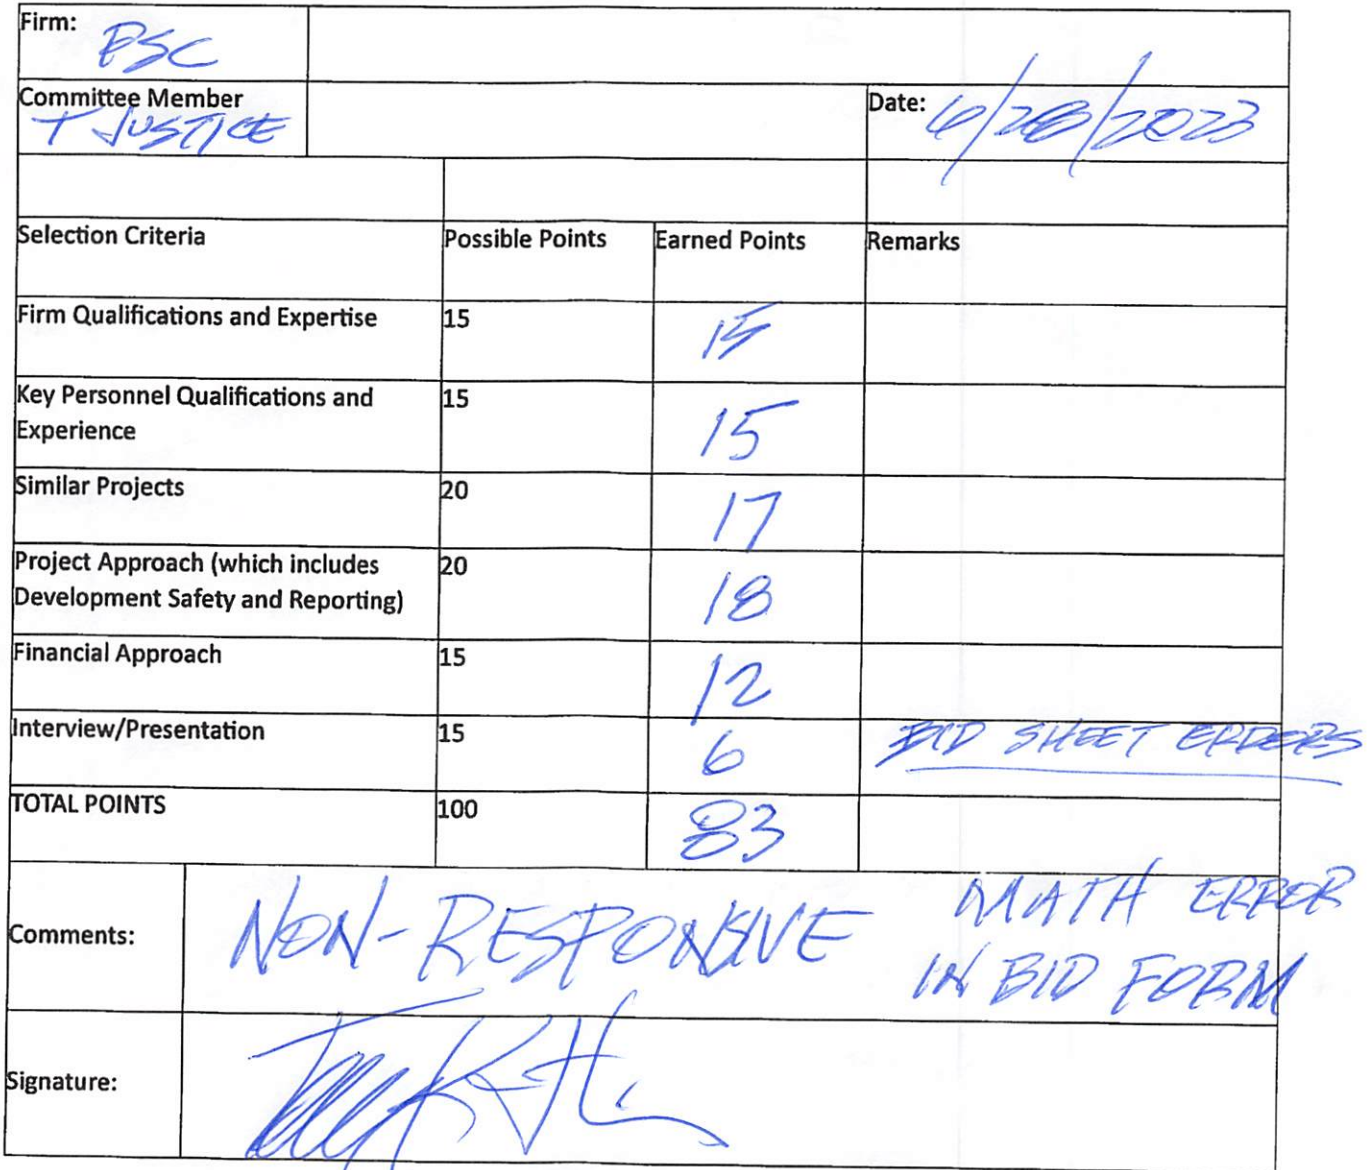 Firm:
PSC
Committee Member
T JUSTICE
Date: 6/28/2023
Selection Criteria Possible Points Earned Points Remarks
Firm Qualifications and Expertise 15 15
Key Personnel Qualifications and
Experience 15 15
Similar Projects 20 17
Project Approach (which includes
Development Safety and Reporting) 20 18
Financial Approach 15 12
Interview/Presentation 15 6 BID SHEET ERRORS
TOTAL POINTS 100 83
Comments: NON-RESPONSIVE MATH ERROR
IN BID FORM
Signature: